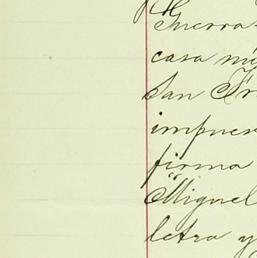 Guerra
casa nú
San Fr
impues
firma
"Miguel
letra y